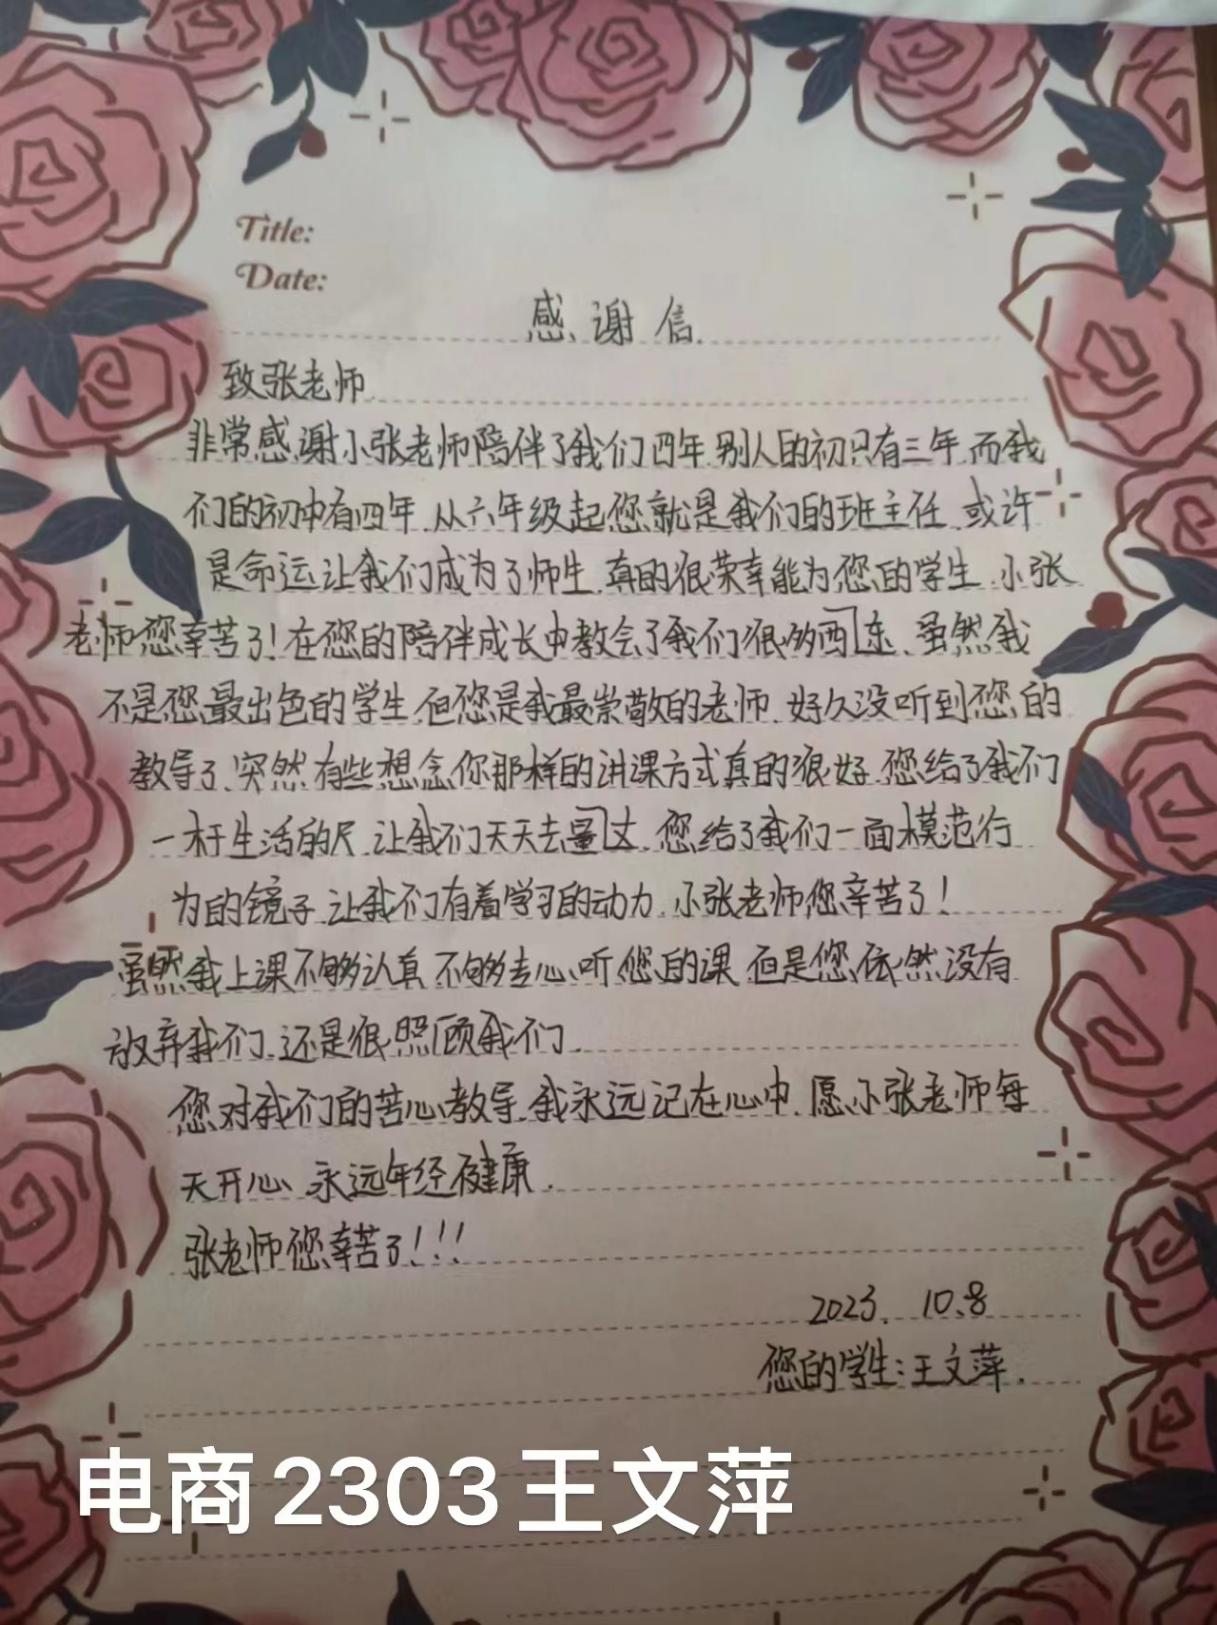 Title:
Date:
感谢信
致张老师
非常感谢小张老师陪伴了我们四年.别人的初只有三年.而我
们的初中有四年.从六年级起您就是我们的班主任.或许
是命运让我们成为了师生.真的很荣幸能为您的学生.小张
老师您幸苦了!在您的陪伴成长中教会了我们很多西东、虽然我
不是您最出色的学生.但您是我最崇敬的老师.好久没听到您的
教导了.突然有些想念你那样的讲课方式真的很好.您给了我们
一杆生活的尺.让我们天天去量丈.您给了我们一面模范行
为的镜子.让我们有着学习的动力.小张老师您辛苦了!
虽然我上课不够认真.不够专心听您的课.但是您依然没有
放弃我们.还是很照顾我们.
您对我们的苦心教导.我永远记在心中.愿小张老师每
天开心、永远年经健康.
张老师您幸苦了!!!
2023. 10.8
您的学生:王文萍.
电商2303王文萍